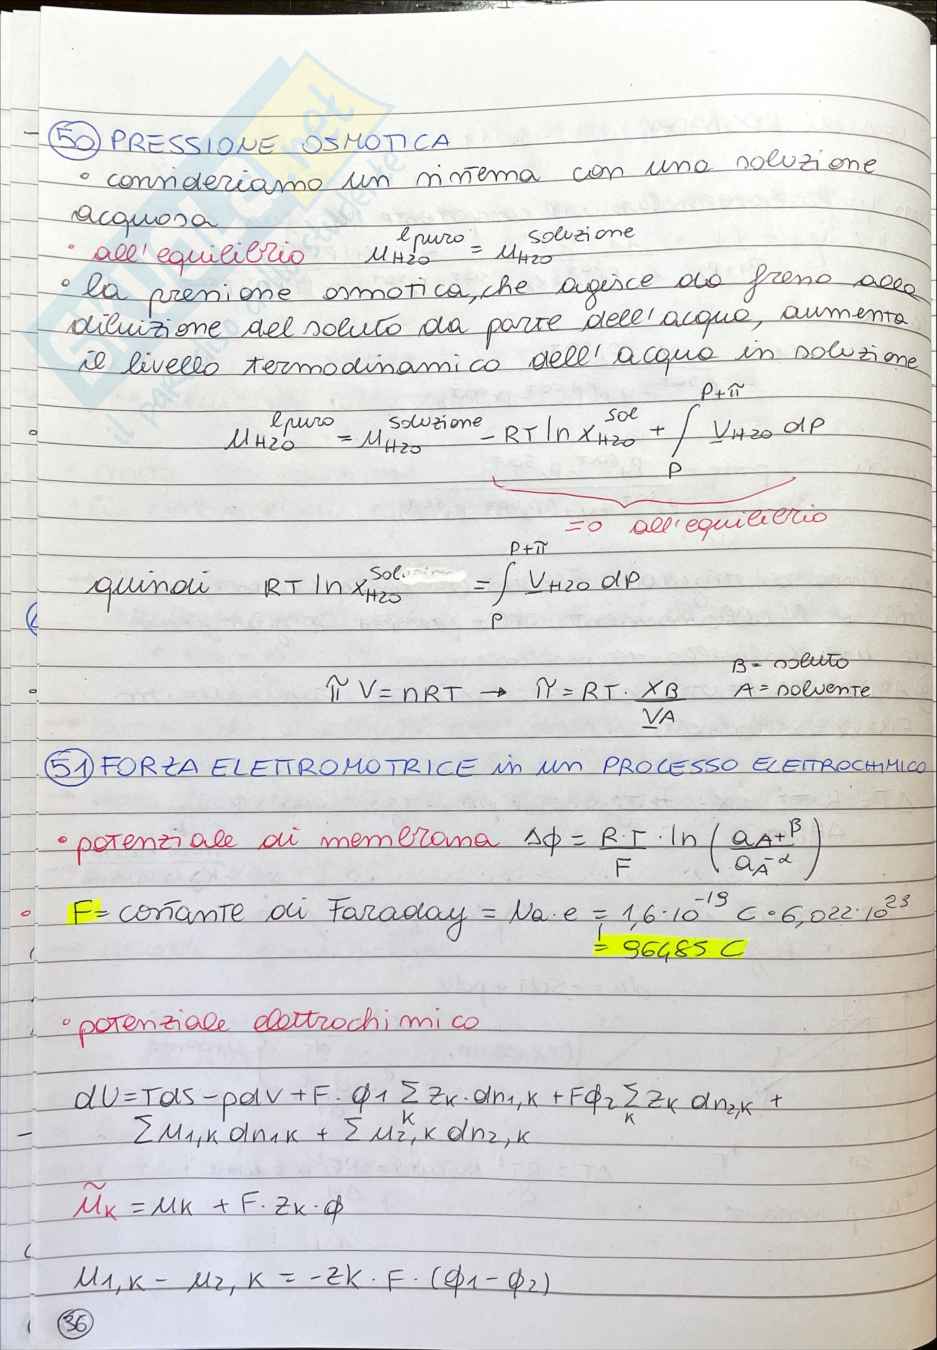 50 PRESSIONE OSMOTICA
• consideriamo un sistema con una soluzione
acquosa
• all'equilibrio μH2O^(l, puro) = μH2O^(soluzione)
• la pressione osmotica, che agisce da freno alla
diluizione del soluto da parte dell'acqua, aumenta
il livello termodinamico dell'acqua in soluzione
μH2O^(l, puro) = μH2O^(soluzione) - RT ln xH2O^(sol) + ∫_P^(P+π) VH2O dP
=0 all'equilibrio
quindi RT ln xH2O^(sol) = ∫_P^(P+π) VH2O dP
B = soluto
π V = nRT → π = RT · XB/VA A = solvente
51 FORZA ELETTROMOTRICE in un PROCESSO ELETTROCHIMICO
• potenziale di membrana Δϕ = R·T/F · ln (aA+^β / aA-^α)
F = costante di Faraday = Na·e = 1,6·10^-19 C · 6,022·10^23
= 96485 C
• potenziale elettrochimico
dU = TdS - pdV + F·ϕ1 Σ_K zK·dn1,K + Fϕ2 Σ_K zK dn2,K +
Σμ1,K dn1K + Σμ2,K dn2,K
μ̃K = μK + F·zK·ϕ
μ1,K - μ2,K = -zK·F·(ϕ1-ϕ2)
36